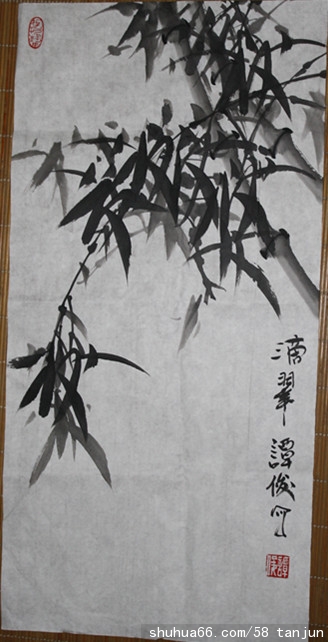 滴翠 譚俊
shuhua66.com/58 tanjun